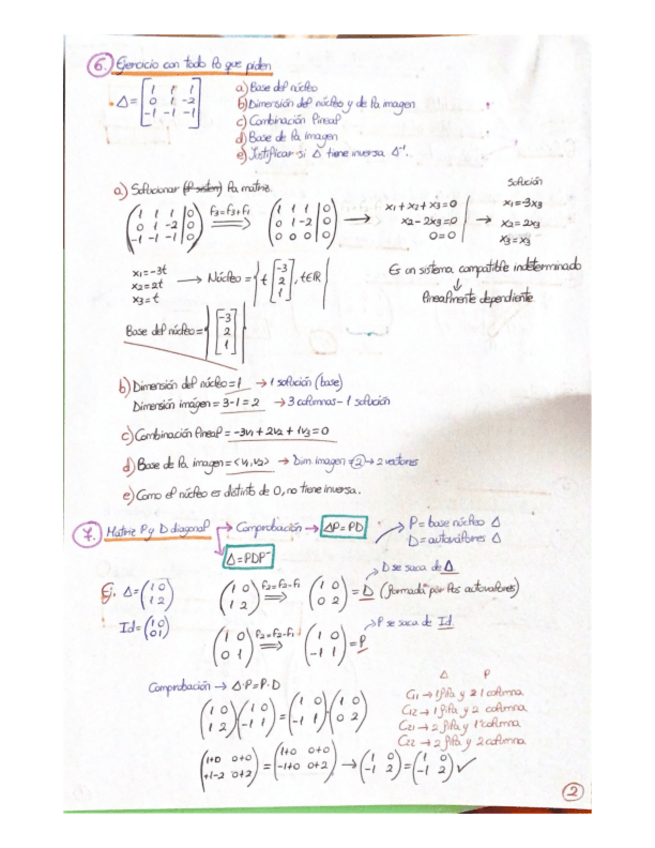 6. Ejercicio con todo lo que piden
A = [1 1 1; 0 1 -2; -1 -1 -1]
a) Base del núcleo
b) Dimensión del núcleo y de la imagen
c) Combinación lineal
d) Base de la imagen
e) Justificar si A tiene inversa A⁻¹.
a) Solucionar la matriz.
(1 1 1 | 0; 0 1 -2 | 0; -1 -1 -1 | 0) F3=F3+F1 ⇒ (1 1 1 | 0; 0 1 -2 | 0; 0 0 0 | 0) → x1+x2+x3=0
x2-2x3=0
0=0
→ Solución
x1=-3x3
x2=2x3
x3=x3
x1=-3t
x2=2t
x3=t
→ Núcleo = { t [-3; 2; 1], t∈ℝ }
Es un sistema compatible indeterminado
↓
linealmente dependiente
Base del núcleo = { [-3; 2; 1] }
b) Dimensión del núcleo = 1 → 1 solución (base)
Dimensión imágen = 3-1 = 2 → 3 columnas - 1 solución
c) Combinación lineal = -3v1 + 2v2 + 1v3 = 0
d) Base de la imagen = <v1, v2> → Dim. imagen = 2 → 2 vectores
e) Como el núcleo es distinto de 0, no tiene inversa.
7. Matriz P y D diagonal → Comprobación → AP=PD
→ A=PDP⁻
P = base núcleo A
D = autovalores A
Ej. A = (1 0; 1 2)
Id = (1 0; 0 1)
(1 0; 1 2) F2=F2-F1 ⇒ (1 0; 0 2) = D (formada por los autovalores)
→ D se saca de A
(1 0; 0 1) F2=F2-F1 ⇒ (1 0; -1 1) = P
→ P se saca de Id
Comprobación → A·P=P·D
(1 0; 1 2)(1 0; -1 1) = (1 0; -1 1)·(1 0; 0 2)
(1+0 0+0; +1-2 0+2) = (1+0 0+0; -1+0 0+2) → (1 0; -1 2) = (1 0; -1 2) ✓
A P
C11 → 1 fila y 1 columna
C12 → 1 fila y 2 columna
C21 → 2 fila y 1 columna
C22 → 2 fila y 2 columna
2